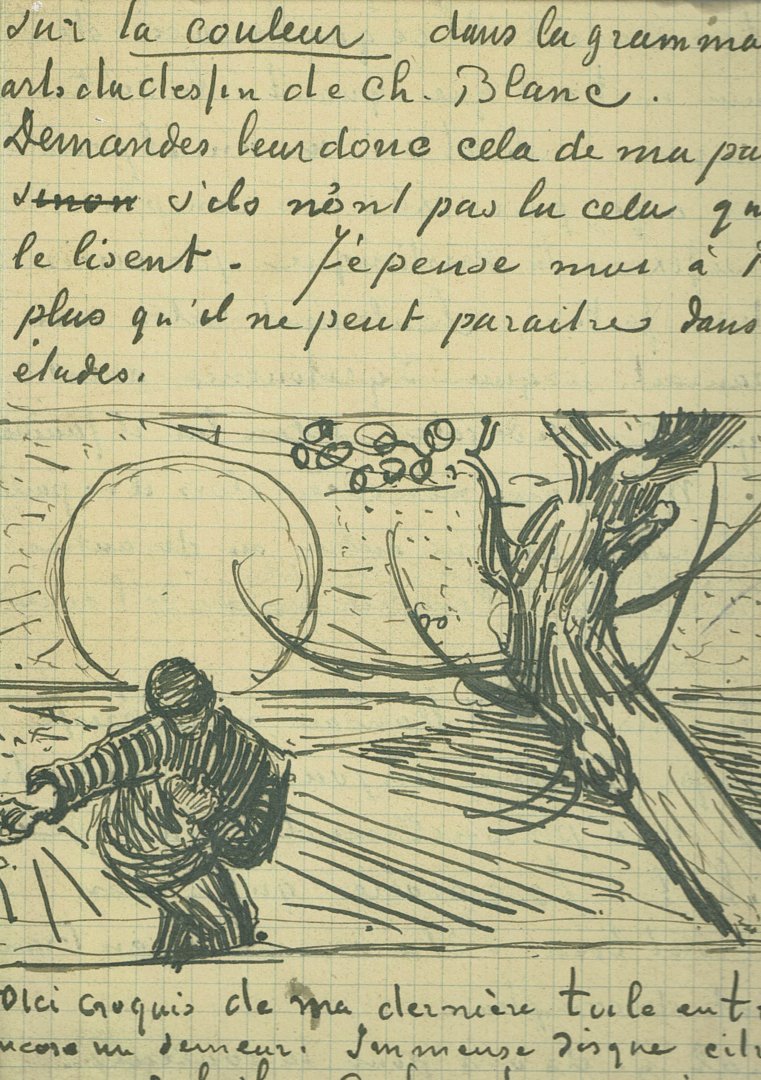 sur la couleur dans la gramma
arts du dessin de Ch. Blanc.
Demandes leur donc cela de ma pa
sinon s'ils n'ont pas lu cela qu
le lisent. Je pense moi à
plus qu'il ne peut paraitre dans
études.
oici croquis de ma dernière toile ent
ncore un semeur. Immense disque cit